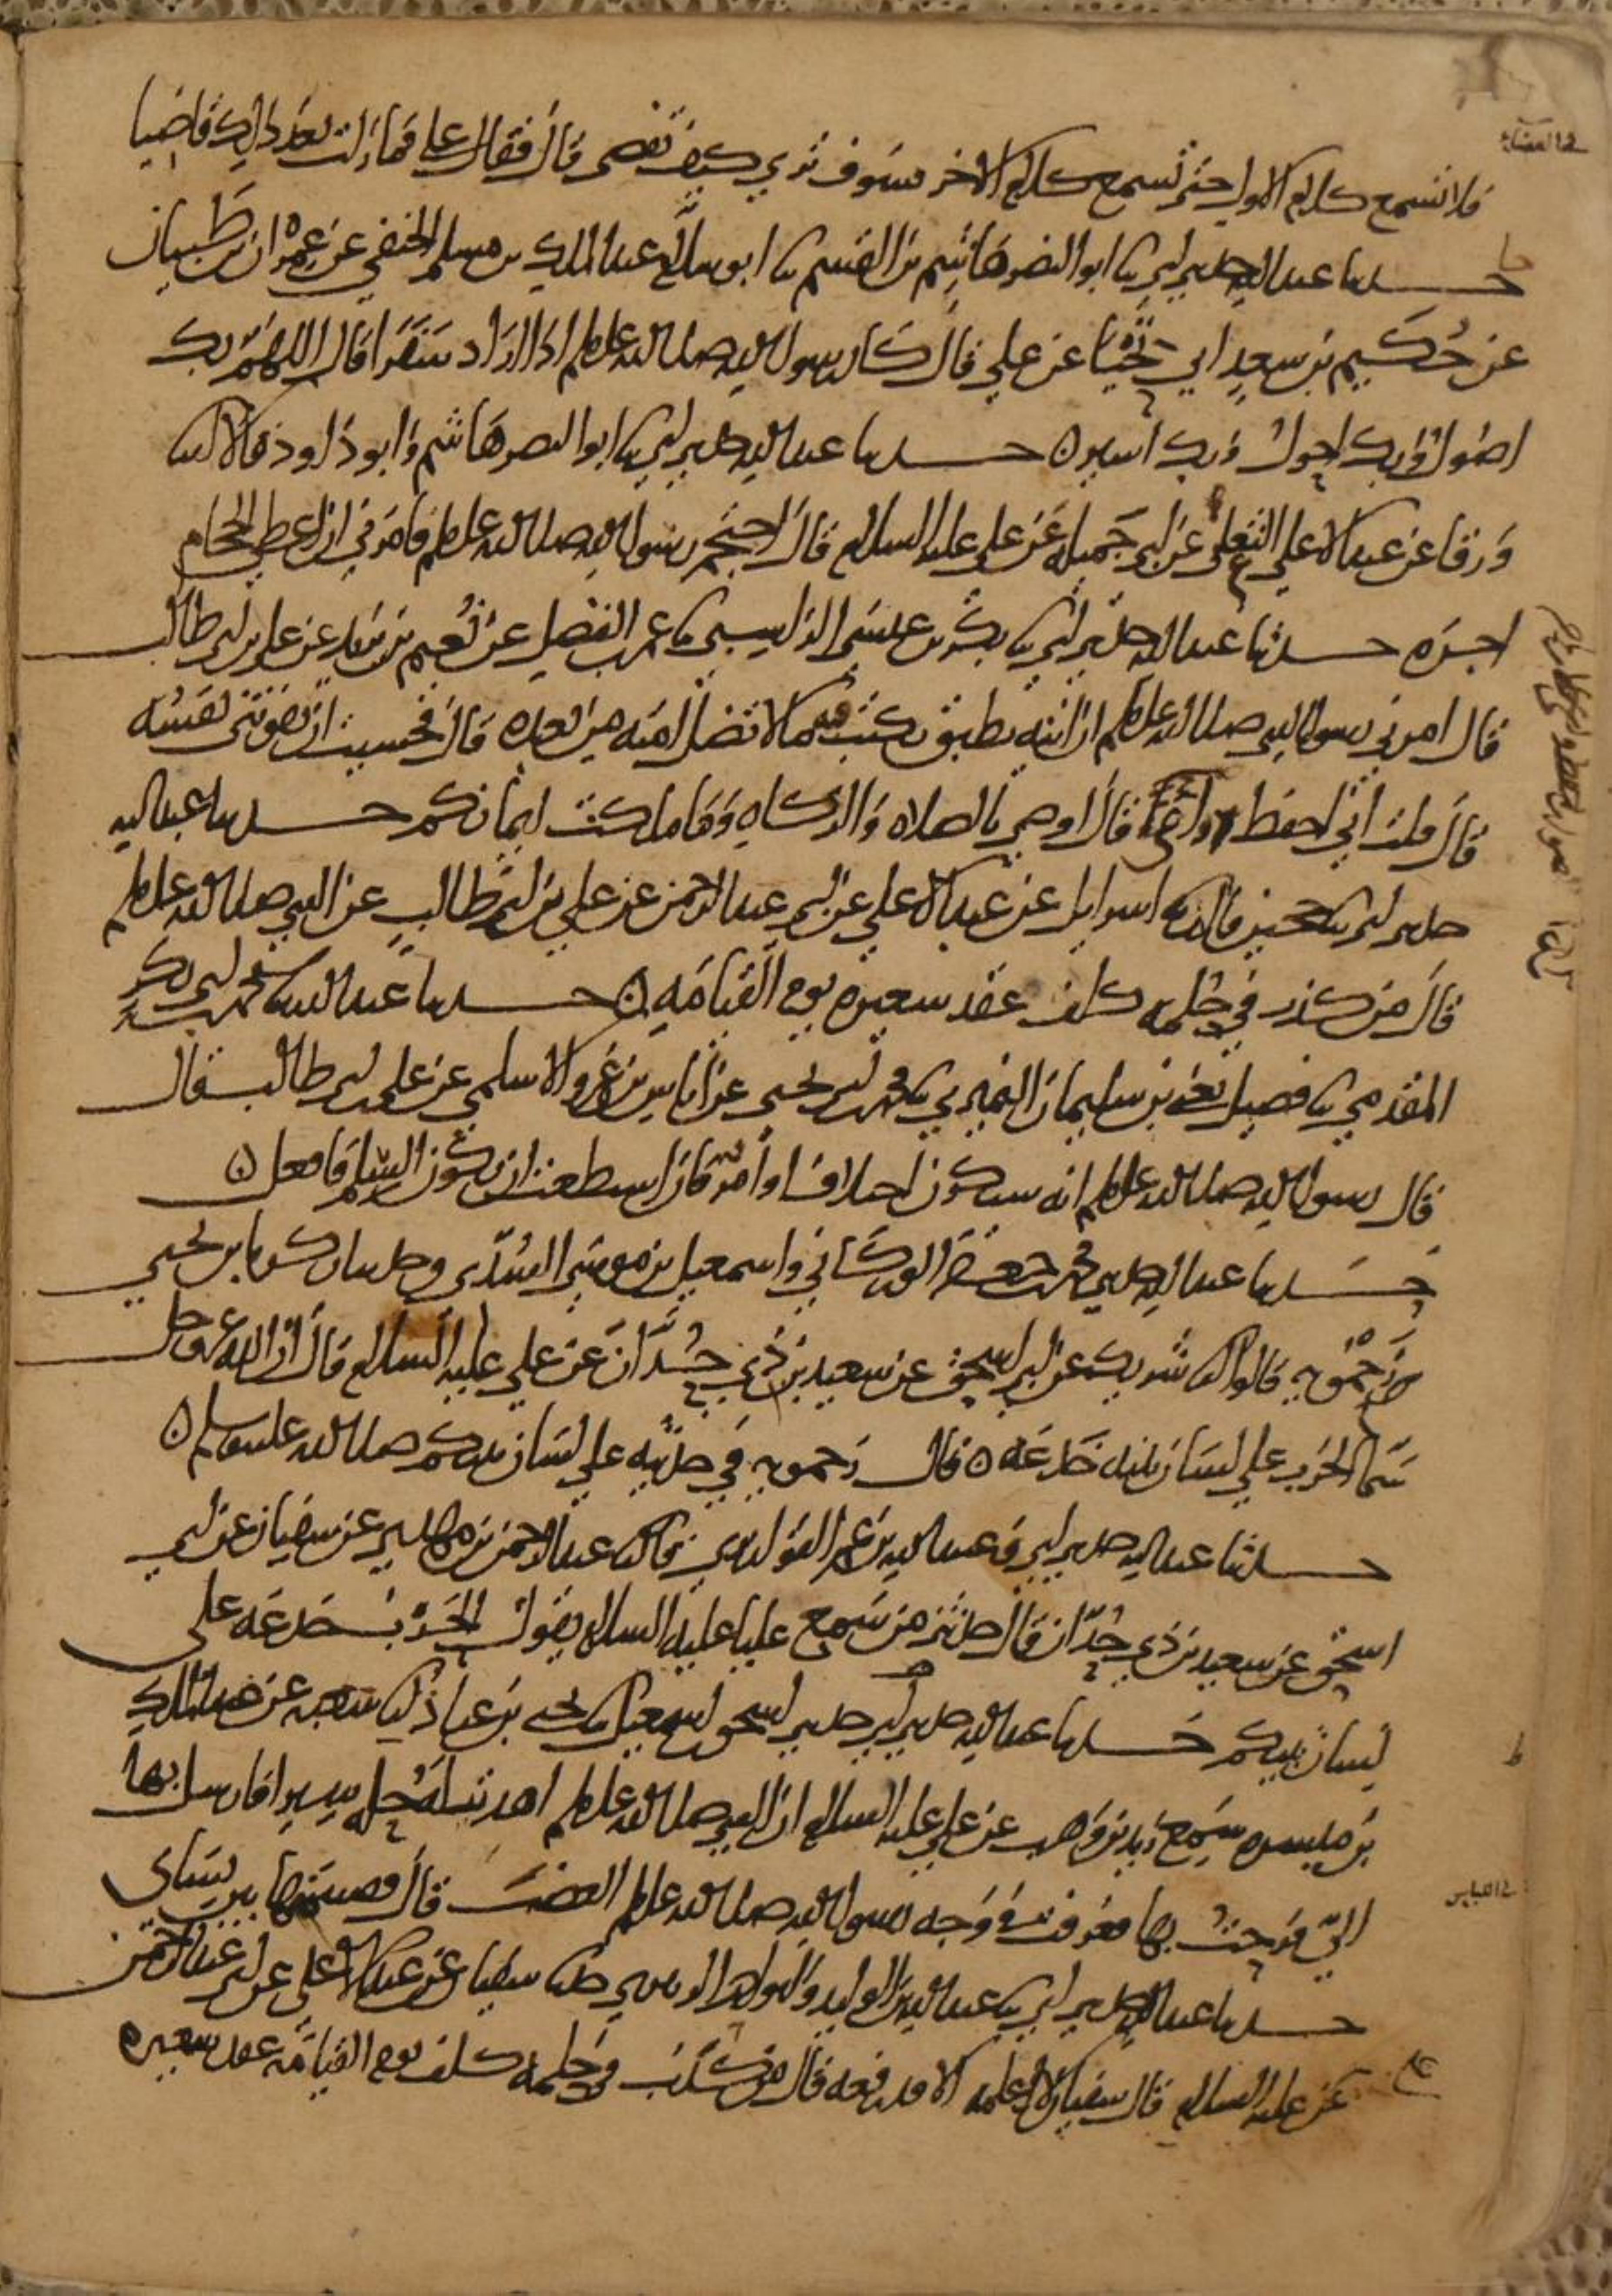 في القضاء
فلا تسمع كلام الاول حتى تسمع كلام الاخر فسوف ترى كيف تقضى قال فقال علي فما زلت بعد ذلك قاضيا
حدثنا عبد الله حدثني ابي نا ابو النضر هاشم بن القسم نا ابو سلام عبد الملك بن مسلم الحنفي عن عمران بن ظبيان
عن حكيم بن سعد ابي تحيا عن علي قال كان رسول الله صلى الله عليه وسلم اذا اراد سفرا قال اللهم بك
اصول وبك احول وبك اسير ه حدثنا عبد الله حدثني ابي نا ابو النضر هاشم وابو داود قالا نا
ورقا عن عبد الاعلى الثعلبي عن ابي جميلة عن علي عليه السلام قال احتجم رسول الله صلى الله عليه وسلم فامرني ان اعطي الحجام
اجره حدثنا عبد الله حدثني ابي نا بكر بن عيسى الراسبي نا عمر بن الفضل عن نعيم بن يزيد عن علي بن ابي طالب
قال امرني رسول الله صلى الله عليه وسلم ان اتيه بطبق يكتب فيه ما لا تضل امته من بعده قال فخشيت ان تفوتني نفسه
قال قلت اني احفظ واعي قال اوصي بالصلاه والزكاه وما ملكت ايمانكم حدثنا عبد الله
حدثني ابي نا حجين قال نا اسرايل عن عبد الاعلى عن ابي عبد الرحمن عن علي بن ابي طالب عن النبي صلى الله عليه وسلم
قال من كذب في حلمه كلف عقد شعيره يوم القيامه ه حدثنا عبد الله نا محمد بن ابي بكر
المقدمي نا فضيل يعني بن سليمان النميري نا محمد بن ابي يحيى عن اياس بن عمرو الاسلمي عن علي بن ابي طالب قال
قال رسول الله صلى الله عليه وسلم انه سيكون اختلاف او امر فان استطعت ان يكون السلم فافعل ه
حدثنا عبد الله حدثني محمد بن جعفر الوركاني واسمعيل بن موسى السدي وحدثنا زكريا بن يحيى
زحمويه قالوا انا شريك عن ابي اسحق عن سعيد بن ذي حدان عن علي عليه السلام قال ان الله عز وجل
سمى الحرب على لسان نبيه خدعه ه قال زحمويه في حديثه على لسان نبيكم صلى الله عليه وسلم ه
حدثنا عبد الله حدثني ابي وعبيد الله بن عمر القواريري قالا نا عبد الرحمن بن مهدي عن سفيان عن ابي
اسحق عن سعيد بن ذي حدان قال حدثني من سمع عليا عليه السلام يقول الحرب خدعه على
لسان نبيكم حدثنا عبد الله حدثني ابي حدثني اسحق بن اسمعيل نا يحيى بن عباد نا شعبه عن عبد الملك
بن ميسره سمع زيد بن وهب عن علي عليه السلام ان النبي صلى الله عليه وسلم اهديت له حله سيرا فارسل بها
في اللباس
الي فرحت بها فعرفت في وجه رسول الله صلى الله عليه وسلم الغضب قال فقسمتها بين نساى
حدثنا عبد الله حدثني ابي نا عبد الله بن الوليد وابو احمد الزبيري قالا نا سفيان عن عبد الاعلى عن ابي عبد الرحمن
عن علي عليه السلام قال سفيان لا اعلمه الا قد رفعه قال من كذب في حلمه كلف يوم القيامه عقد شعيره